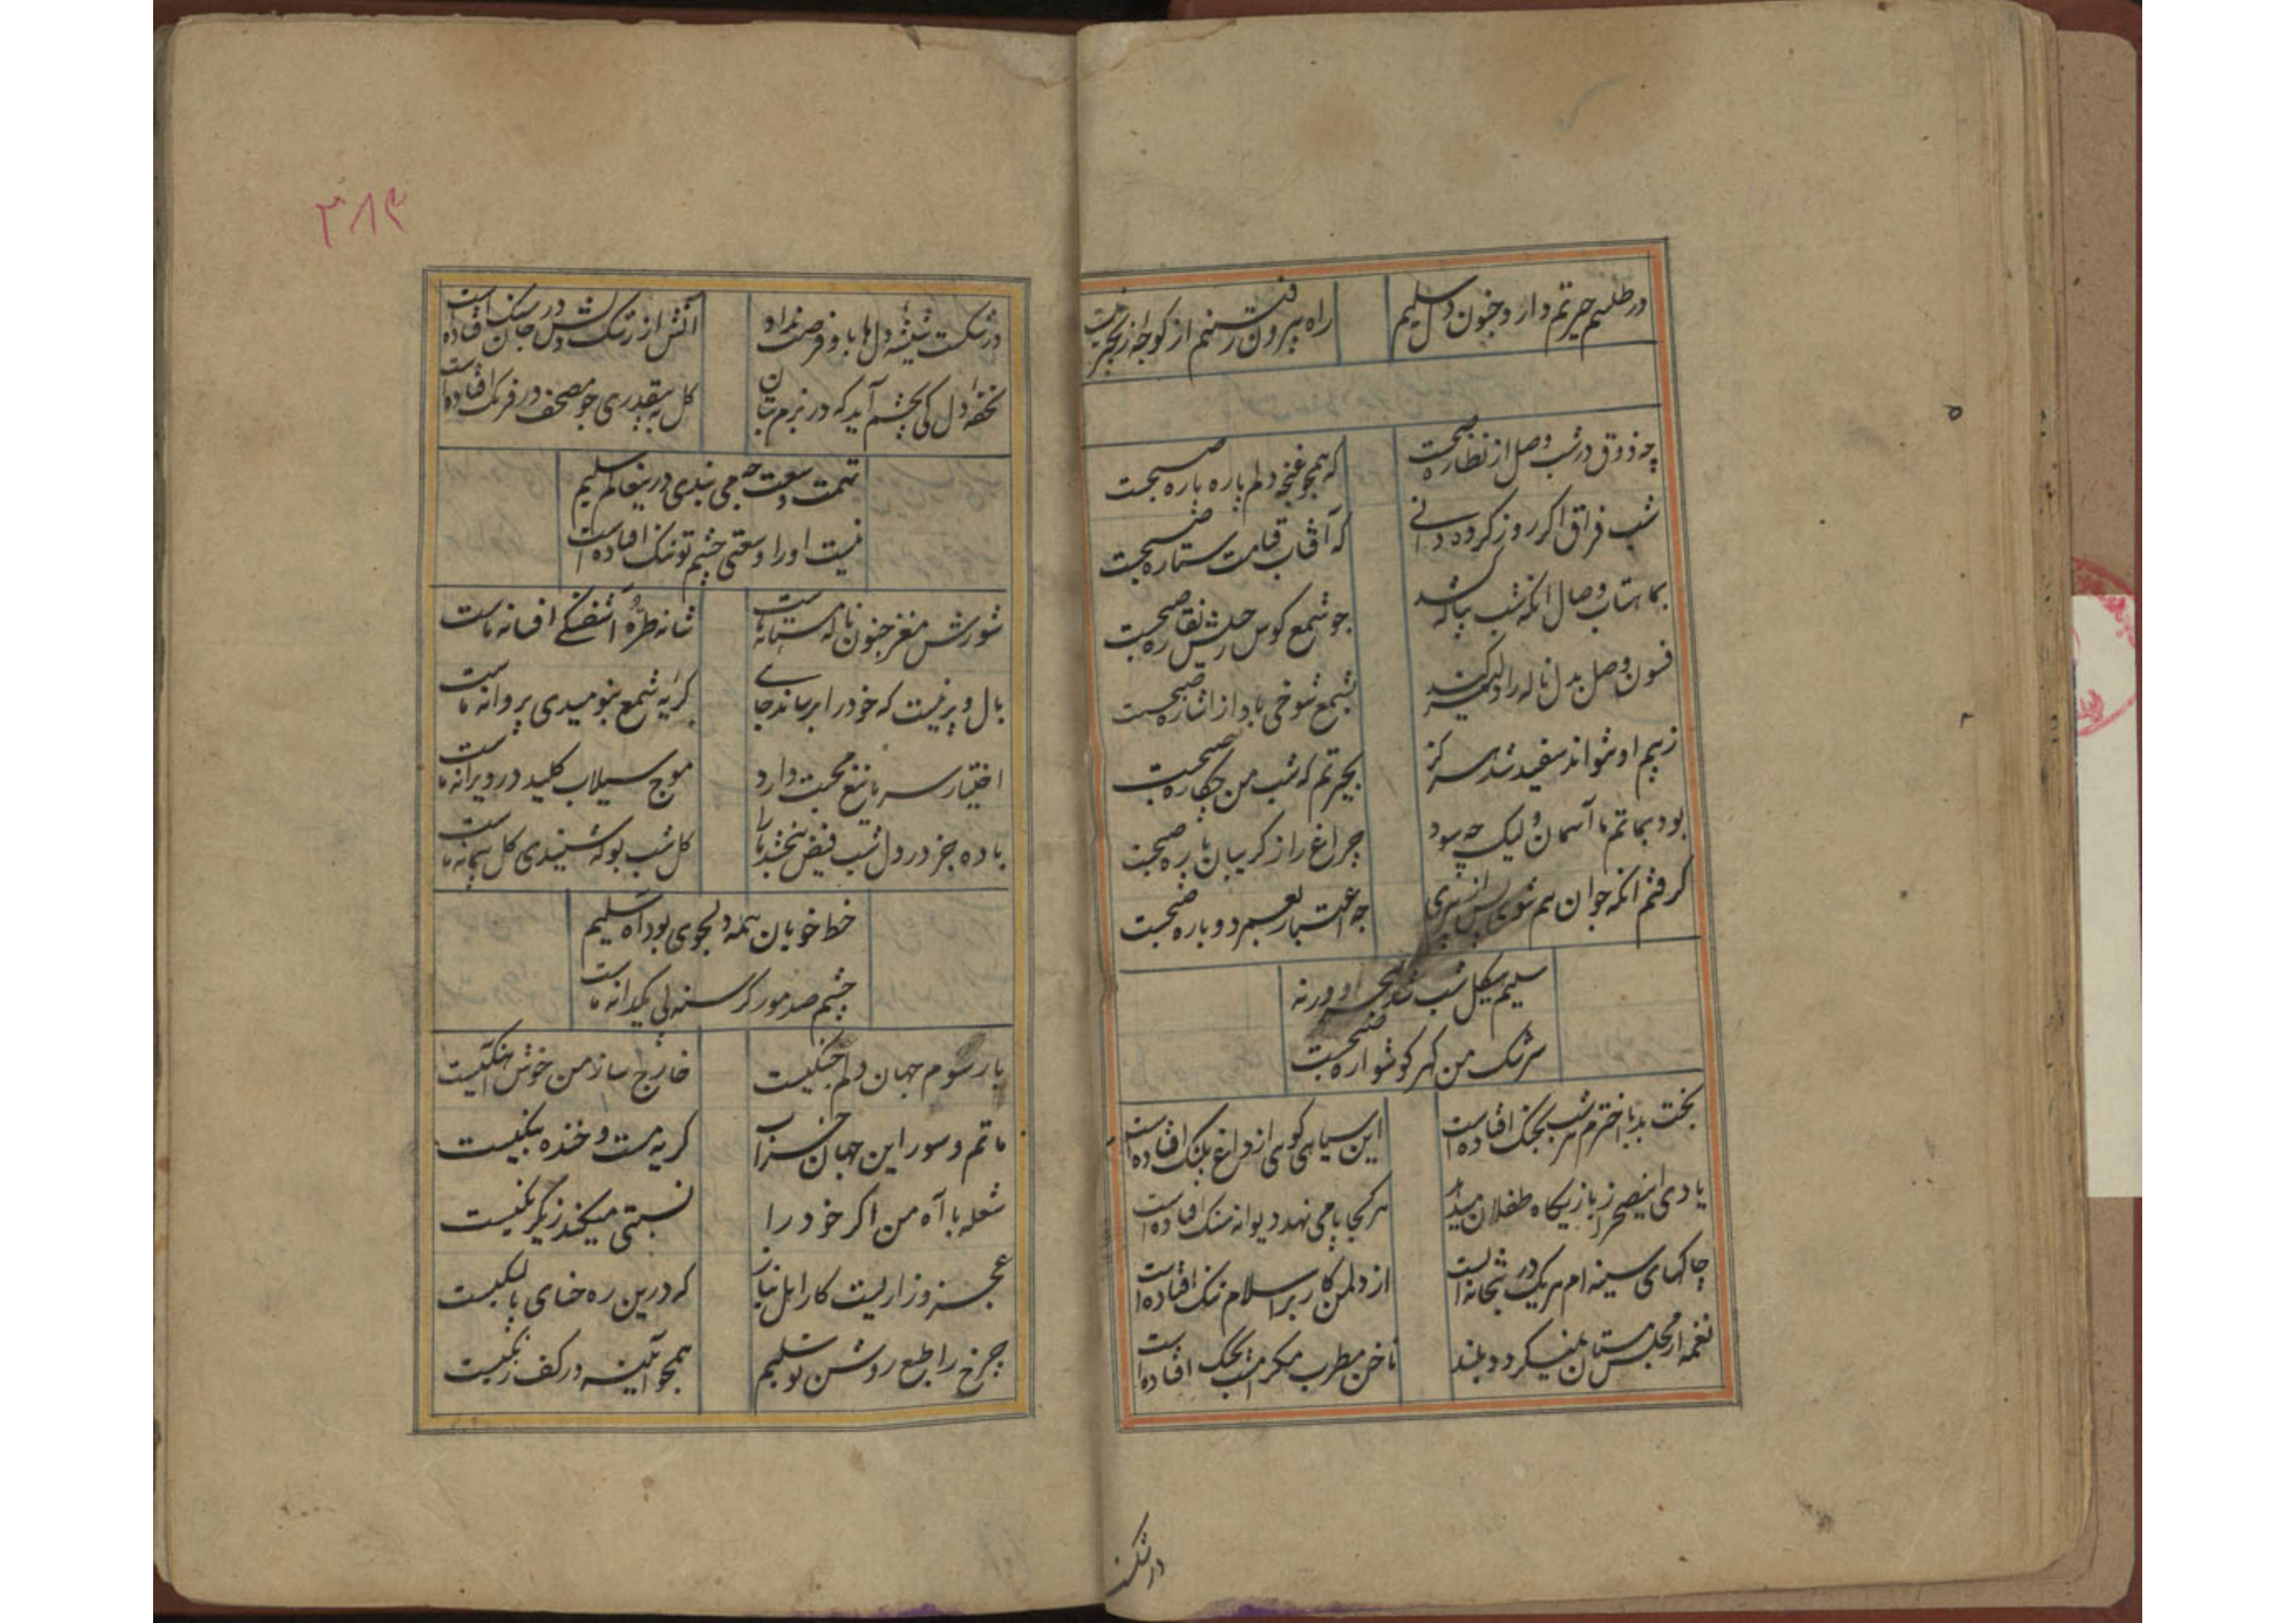 در طلسم حیرتم دارد جنون دل سلیم
راه بیرون رفتنم از کوچه زنجیر نیست
چه ذوق در شب وصل از نظاره صبحست
که همچو غنچه دلم پاره پاره صبحست
شب فراق اگر روز کرده دانی
که آفتاب قیامت ستاره صبحست
بماهتاب وصال انکه شب بپا که شد
چو شمع کوس رحیلش نقاره صبحست
فسون وصل بدل ناله را دلیر کند
بشمع شوخی باد از اشاره صبحست
زبیم او نتواند سفید شد هرگز
بحیرتم که شب من چکاره صبحست
بود بماتم ما آسمان ولیک چه سود
چراغ را ز گریبان پاره صبحست
گرفتم انکه جوان هم شوی پس از پیری
چه اعتبار بعمر دوباره صبحست
سلیم هیکل شب شد او ورنه
سرشک من گهر گوشواره صبحست
بخت بد با اخترم هر شب بجنگ افتاده است
این سیاهی گوی از داغ پلنگ افتاده است
یادی این صحرا ز بازیگاه طفلان میدهد
هر کجا پا می نهد دیوانه سنگ افتاده است
چاکهای سینه ام هریک در بتخانه است
از دل من کار بر اسلام تنگ افتاده است
نغمه از مجلس مستان نمیگردد بلند
ناخن مطرب مگر امشب بچنگ افتاده است
در شکست
۳۸۴
در شکست شیشه دل ها باو فرصت نداد
آتش از رشک دلش در جان سنگ افتاده است
تحفه دل کی بچشم آید که در بزم بتان
گل به بیقدری چو مصحف در فرنگ افتاده است
تهمت وسعت چه می بندی درین عالم سلیم
نیست او را وسعتی چشم تو تنگ افتاده است
شورش مغز جنون ناله مستانه ماست
شانه طره آشفتگی افسانه ماست
بال و پر نیست که خود را برساند جایی
گریه شمع بنومیدی پروانه ماست
اختیار سر ما تیغ محبت دارد
موج سیلاب کلید در ویرانه ماست
باده جز در دل شب فیض نبخشد ما را
گل شب بو که شنیدی گل پیمانه ماست
خط خوبان همه دلجوی بود آه سلیم
چشم صد مور گرسنه پی یکدانه ماست
با رسوم جهان دلم جنگیست
خارج ساز من خوش آهنگیست
ماتم و سور این جهان خراب
گریه مست و خنده بنگیست
شعله با آه من اگر خود را
نسبتی میکند ز یکرنگیست
عجز و زاریست کار اهل نیاز
که درین ره حنای پا لنگیست
چرخ را طبع روشن تو سلیم
همچو آئینه در کف زنگیست